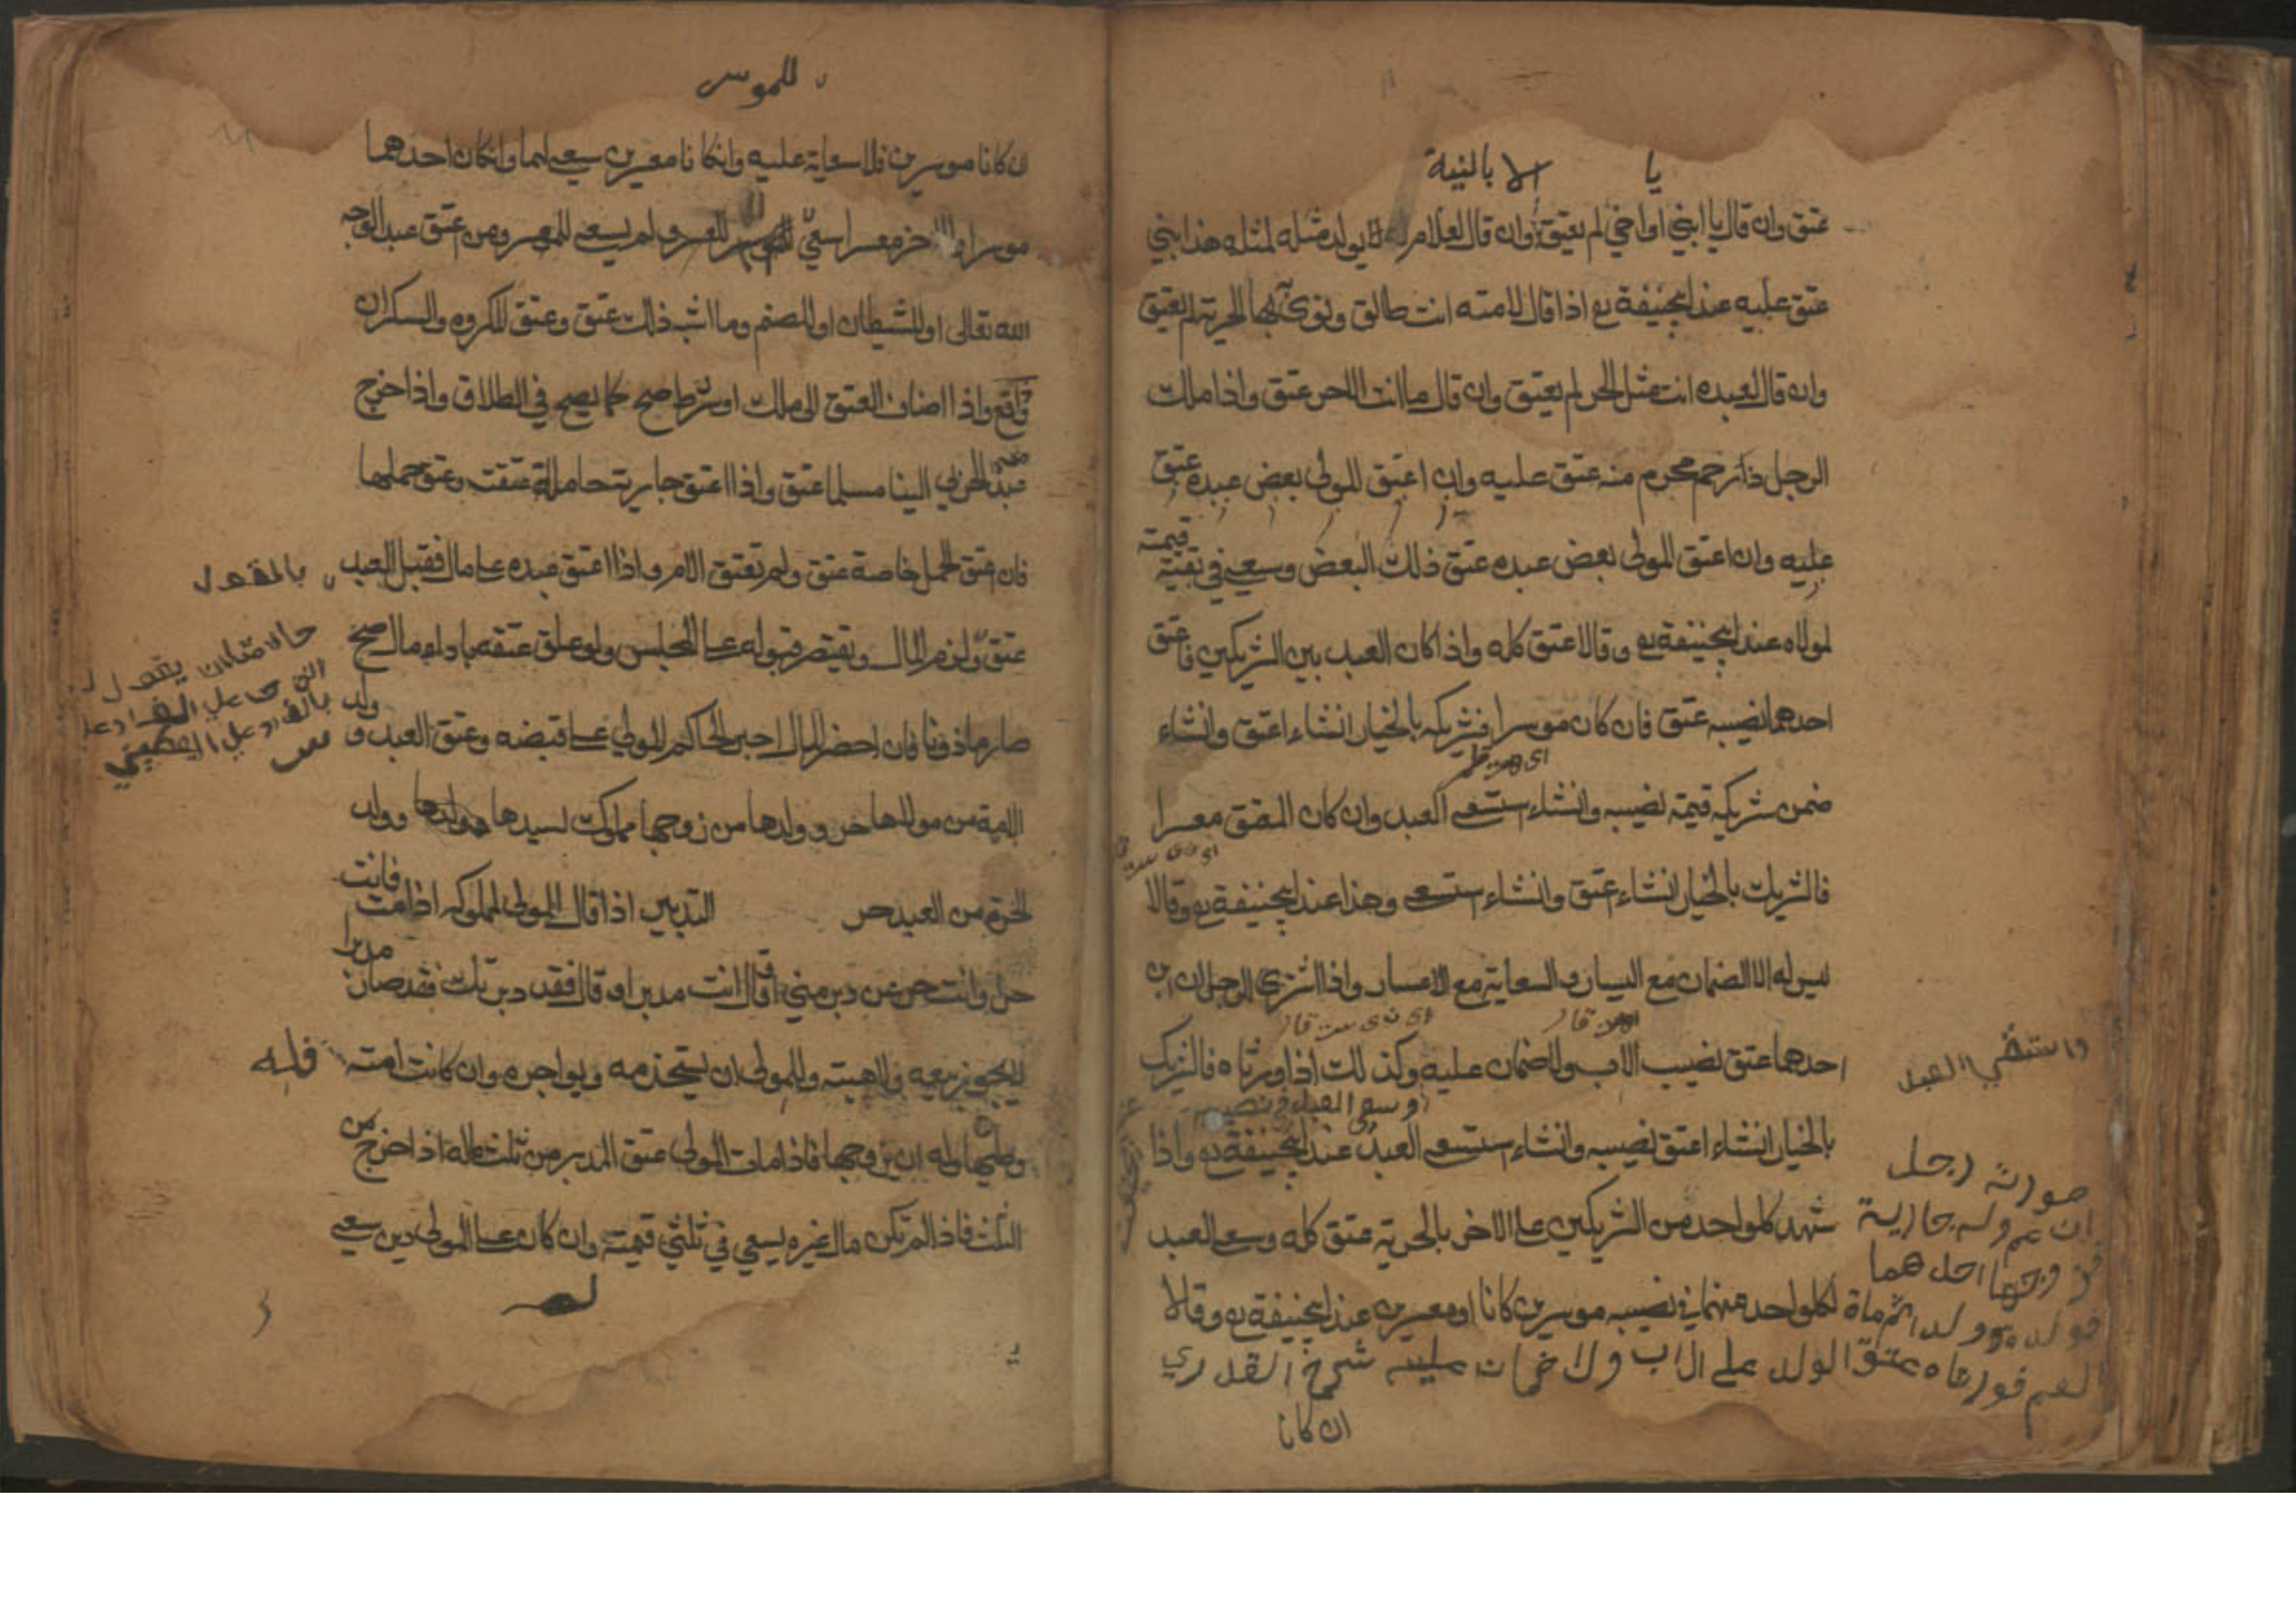 يا
الا بالنية
عتق وان قال يا ابني او اخي لم يعتق وان قال لغلام لا يولد مثله لمثله هذا ابني
عتق عليه عند ابيحنيفة رح اذا قال لامته انت طالق ونوى بها الحرية لم يعتق
وان قال لعبده انت مثل الحر لم يعتق وان قال ما انت الا حر عتق واذا ملك
الرجل ذا رحم محرم منه عتق عليه وان اعتق المولى بعض عبده عتق
عليه وان اعتق المولى بعض عبده عتق ذلك البعض وسعى في بقية قيمته
لمولاه عند ابيحنيفة رح وقالا عتق كله واذا كان العبد بين الشريكين فاعتق
احدهما نصيبه عتق فان كان موسرا فشريكه بالخيار انشاء اعتق وانشاء
ضمن شريكه قيمة نصيبه وانشاء استسعى العبد وان كان المعتق معسرا
فالشريك بالخيار انشاء عتق وانشاء ستسعى وهذا عند ابيحنيفة رح وقالا
ليس له الا الضمان مع اليسار والسعاية مع الاعسار واذا اشترى الرجلان ابن
احدهما عتق نصيب الاب ولا ضمان عليه وكذلك اذا ورثاه فالشريك
وسعى العبد في نصيبه
بالخيار انشاء اعتق نصيبه وانشاء ستسعى العبد عند ابيحنيفة رح واذا
شهد كلواحد من الشريكين علا الاخر بالحرية عتق كله وسعى العبد
لكلواحد منهما في نصيبه موسرين كانا او معسرين عند ابيحنيفة رح وقالا
واستسقى العبد
صورته رجل
ابن عم وله جارية
فزوجها احدهما
فولده ولد اثم مات
العم فورثاه عتق الولد على الاب ولا ضمان عليه شرح القدري
ان كانا
للموسر
ان كانا موسرين فلا سعاية عليه وانكانا معسرين سعى لهما وانكان احدهما
موسرا والاخر معسرا سعى للموسر ولم يسعى للمعسر ومن عتق عبده لوجه
الله تعالى او للشيطان او للصنم وما اشبه ذلك عتق وعتق المكروه والسكران
واقع واذا اضاف العتق الى ملك او شرط صح كما يصح في الطلاق واذا خرج
عبد الحربي الينا مسلما عتق واذا اعتق جارية حاملة عتقت وعتق حملها
فان عتق الحمل خاصة عتق ولم تعتق الام واذا اعتق عبده علا مال فقبل العبد
عتق ولزم المال ويقتصر قبوله علا المجلس ولو علق عتقه باداء مال صح
صار ماذونا فان احضر المال اجبر الحاكم المولي علا قبضه وعتق العبد و ولد
الامة من مولاها حر وولدها من زوجها مملوك لسيدها وولد
الحرة من العبد حر التدبير اذا قال المولى لمملوكه اذا مت فانت
حر او انت حر عن دبر مني او قال انت مدبر او قال فقد دبرتك فقد صار مدبرا
لا يجوز بيعه ولا هبته وللمولى ان يستخدمه ويواجره وان كانت امته فله
وطيها وله ان يزوجها فاذا مات المولى عتق المدبر من ثلث ماله اذا خرج من
الثلث فاذا لم تكن مال غيره يسعى في ثلثي قيمته وان كان علا المولى دين سعى